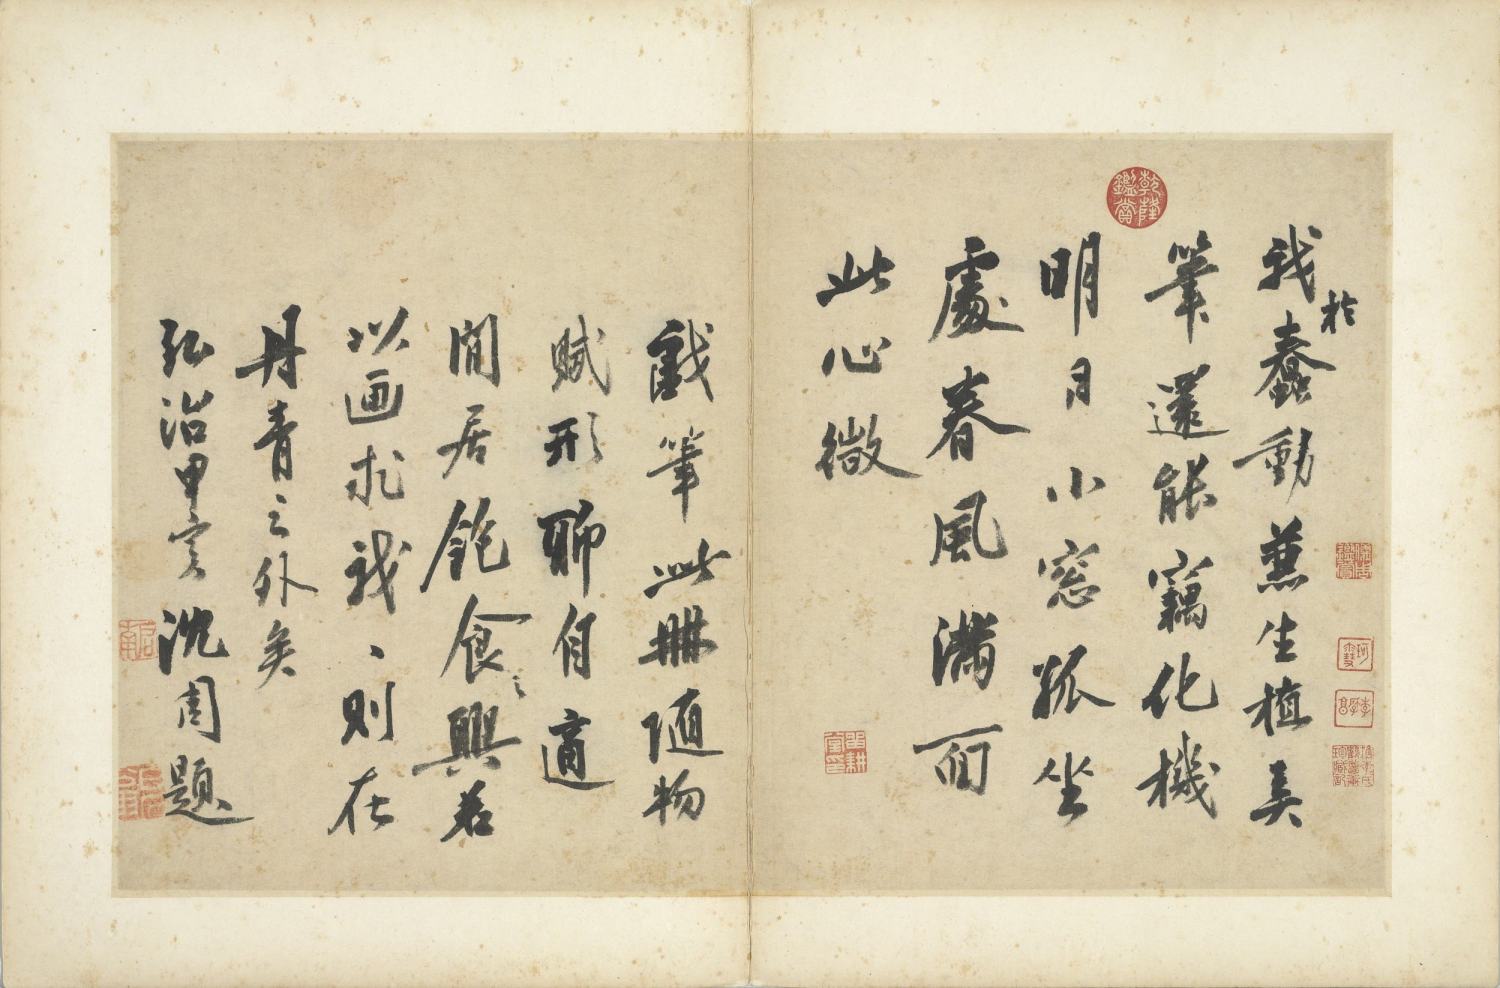 乾隆鑑賞
我於蠢動兼生植弄
筆還能竊化機
明日小窓孤坐
處春風滿面
此心微
戲筆此冊隨物
賦形聊自適
閒居飽食之興若
以画求我、則在
丹青之外矣
弘治甲寅沈周題
啓南